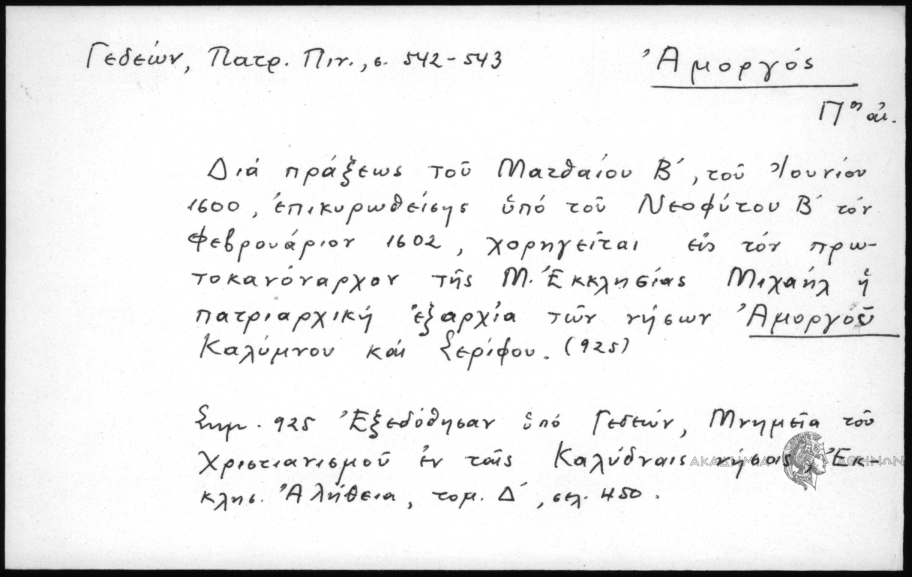 Γεδεών, Πατρ. Πιν., σ. 542-543
Ἀμοργός
Διά πράξεως τοῦ Ματθαίου Β΄, τοῦ Ἰουνίου
1600, ἐπικυρωθείσης ὑπό τοῦ Νεοφύτου Β΄ τόν
Φεβρουάριον 1602, χορηγεῖται εἰς τόν πρω-
τοκανόναρχον τῆς Μ. Ἐκκλησίας Μιχαήλ ἡ
πατριαρχική ἐξαρχία τῶν νήσων Ἀμοργοῦ
Καλύμνου καί Σερίφου. (925)
Σημ. 925 Ἐξεδόθησαν ὑπό Γεδεών, Μνημεῖα τοῦ
Χριστιανισμοῦ ἐν ταῖς Καλύδναις νήσοις, Ἐκ-
κλησ. Ἀλήθεια, τομ. Δ΄, σελ. 450.
ΑΚΑΔΗΜΙΑ ΑΘΗΝΩΝ